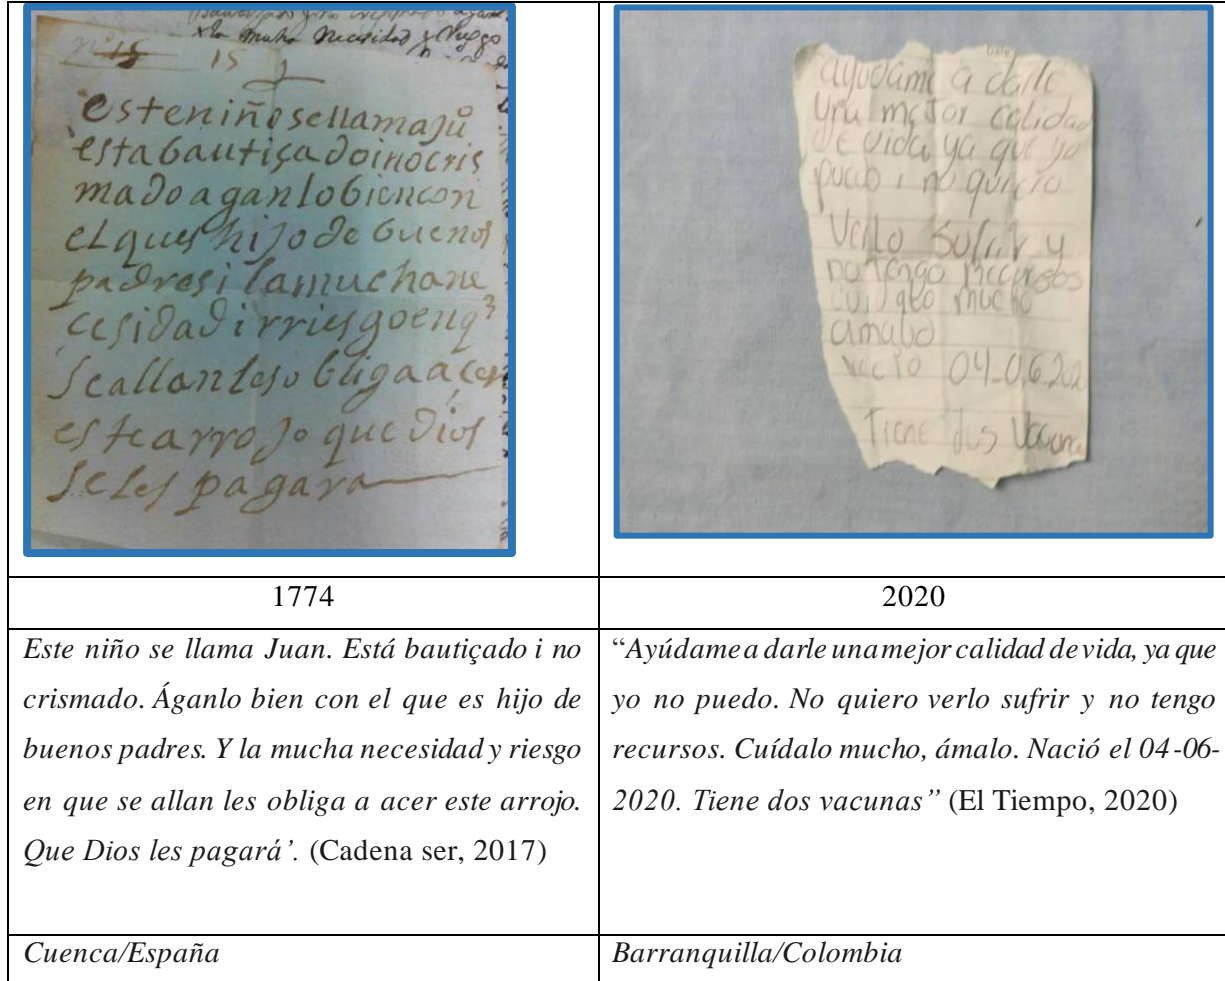 de la mucha Necesidad y Riesgo
nº 15 15
este niño se llama Juº
esta bautiçado i no cris
mado agan lo bien con
el ques hijo de buenos
padres i la mucha ne
cesidad i rriesgo en q
se allan les obliga a çer
este arrojo que Dios
se les pagara
ayudame a darle
una mejor calidad
de vida ya que yo
puedo i no quiero
Verlo sufrir y
no tengo recursos
cuidalo mucho
amalo
Nacio 04-06-202
Tiene dos Vacuna
1774
2020
Este niño se llama Juan. Está bautiçado i no
crismado. Áganlo bien con el que es hijo de
buenos padres. Y la mucha necesidad y riesgo
en que se allan les obliga a acer este arrojo.
Que Dios les pagará’. (Cadena ser, 2017)
“Ayúdame a darle una mejor calidad de vida, ya que
yo no puedo. No quiero verlo sufrir y no tengo
recursos. Cuídalo mucho, ámalo. Nació el 04-06-
2020. Tiene dos vacunas” (El Tiempo, 2020)
Cuenca/España
Barranquilla/Colombia